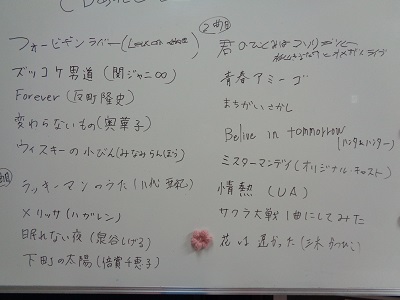 フォービギンラバー(
ズッコケ男道(関ジャニ∞)
Forever(反町隆史)
変わらないもの(奥華子)
ウィスキーの小びん(みなみらんぼう)
ラッキーマンのうた(八代亜紀)
メリッサ(ハガレン)
眠れない夜(泉谷しげる)
下町の太陽(倍賞千恵子)
2曲目
君のひとみは
青春アミーゴ
まちがいさがし
Belive in tommorrow
(ハンターハンター)
ミスターマンデイ(オリジナル・キャスト)
情熱(UA)
サクラ大戦1曲にしてみた
花は遅かった(